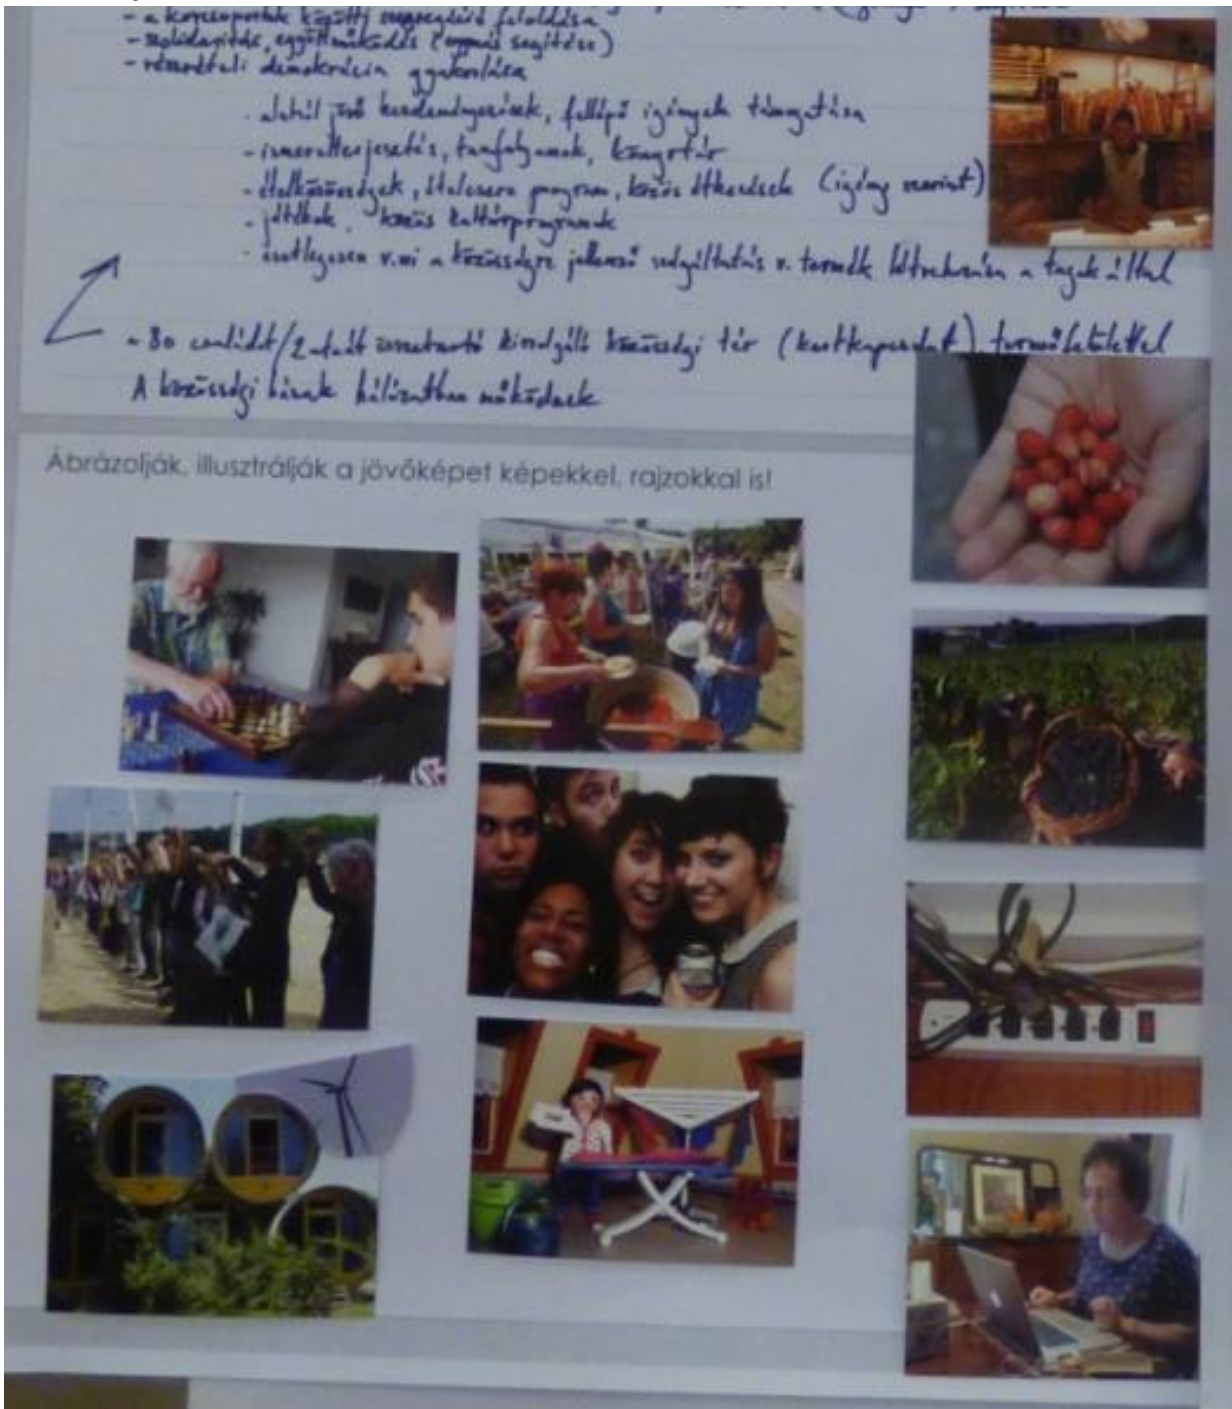 - a korcsoportok közötti szegregáció feloldása
- szolidaritás, együttműködés (egymás segítése)
- részvételi demokrácia gyakorlása
- alulról jövő kezdeményezések, fellépő igények támogatása
- ismeretterjesztés, tanfolyamok, könyvtár
- ételközösségek, ételcsere program, közös étkezések (igény szerint)
- játékok, közös kultúrprogramok
- esetlegesen v.mi a közösségre jellemző szolgáltatás v. termék létrehozása a tagok által
- 80 családot/2 utcát összetartó kiszolgáló közösségi tér (kertkapcsolat)
A közösségi házak hálózatban működnek
Ábrázolják, illusztrálják a jövőképet képekkel, rajzokkal is!